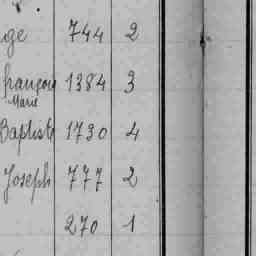 ge 744 2
François 1384 3
Marie
Baptiste 1730 4
Joseph 777 2
270 1